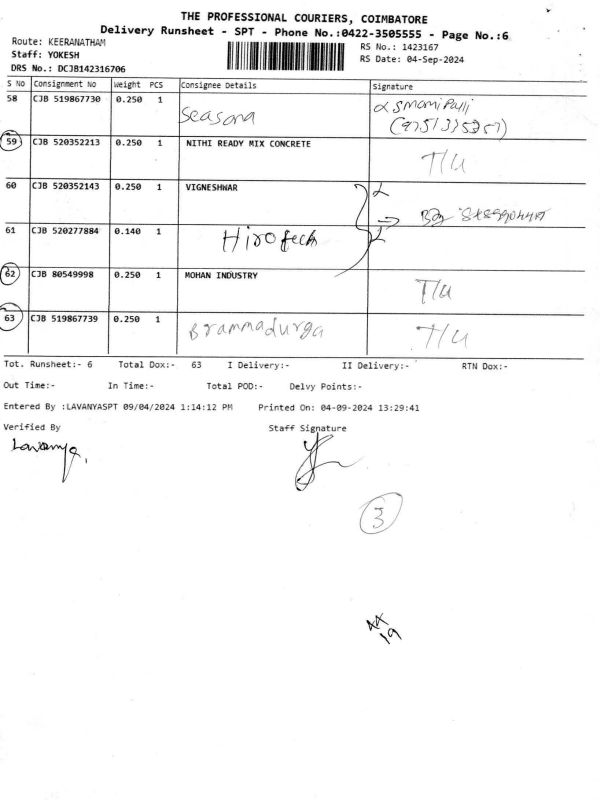 THE PROFESSIONAL COURIERS, COIMBATORE
Delivery Runsheet - SPT - Phone No.:0422-3505555 - Page No.:6
Route: KEERANATHAM
RS No.: 1423167
Staff: YOKESH
RS Date: 04-Sep-2024
DRS No.: DCJB142316706
S No Consignment No Weight PCS Consignee Details Signature
58 CJB 519867730 0.250 1 Seasana
59 CJB 520352213 0.250 1 NITHI READY MIX CONCRETE T/U
60 CJB 520352143 0.250 1 VIGNESHWAR
61 CJB 520277884 0.140 1 Hirotech
62 CJB 80549998 0.250 1 MOHAN INDUSTRY T/U
63 CJB 519867739 0.250 1 Brammadurga T/U
Tot. Runsheet:- 6 Total Dox:- 63 I Delivery:- II Delivery:- RTN Dox:-
Out Time:- In Time:- Total POD:- Delvy Points:-
Entered By :LAVANYASPT 09/04/2024 1:14:12 PM Printed On: 04-09-2024 13:29:41
Verified By Staff Signature
Lavanya.
3
19